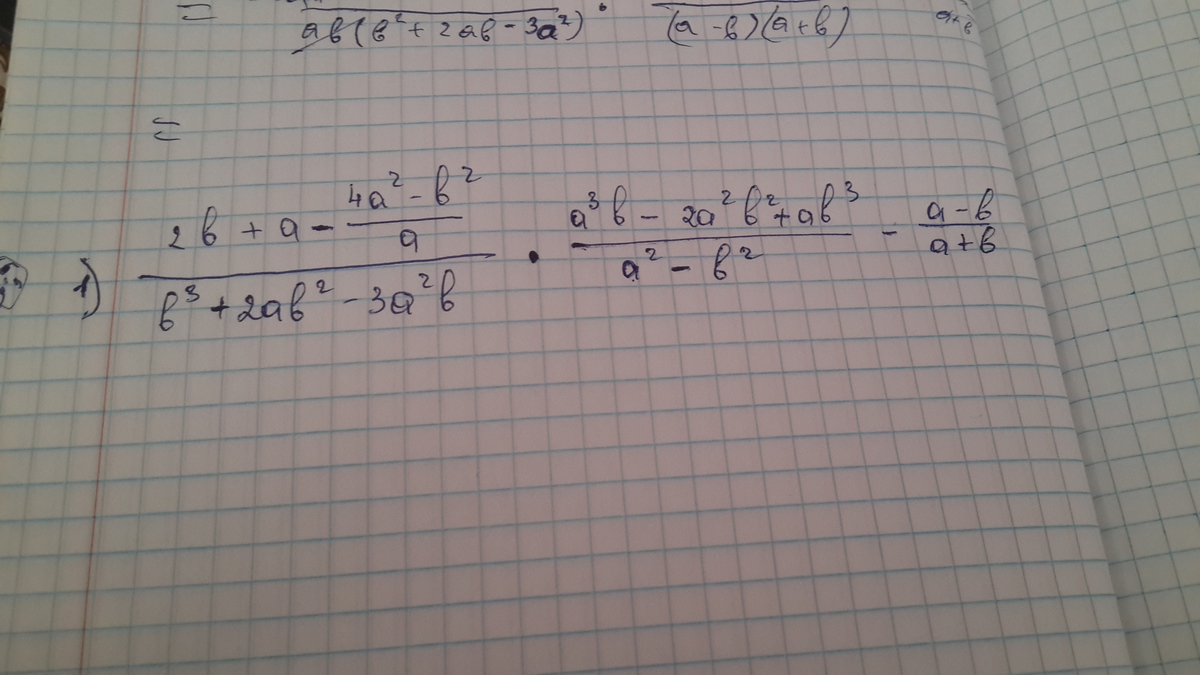 = / ab(b² + 2ab - 3a²) · / (a - b)(a + b)
=
1) (2b + a - (4a² - b²)/a) / (b³ + 2ab² - 3a²b) · (a³b - 2a²b² + ab³) / (a² - b²) - (a - b)/(a + b)